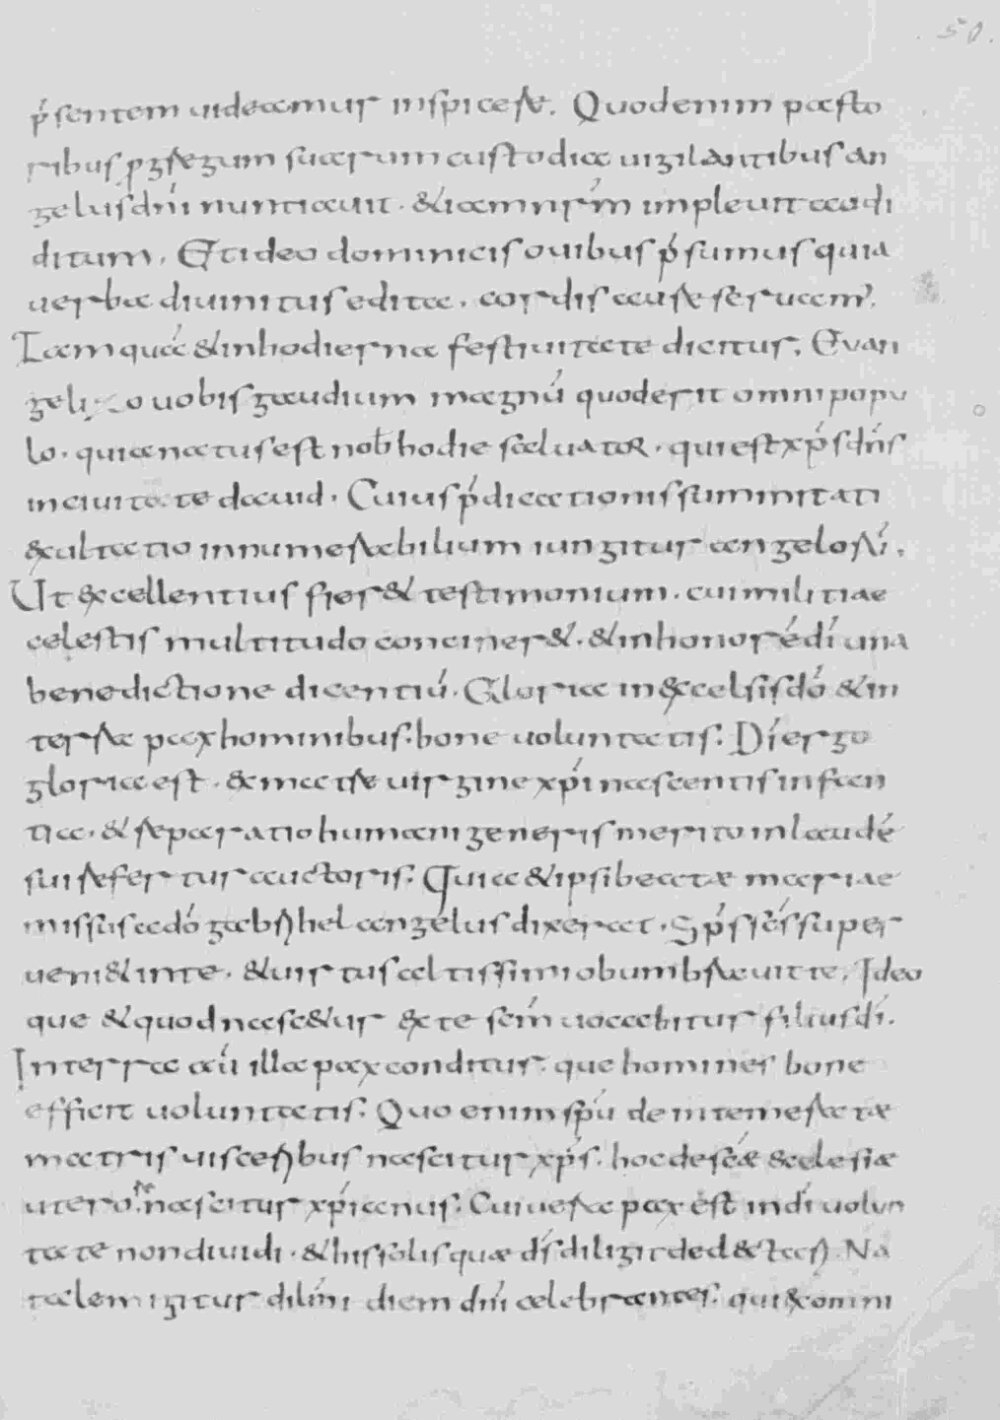 50.
p̄sentem uideamur inspicere. Quodenim pasto
ribus pgregum suarum custodia uigilantibus an
gelusdn̄i nuntiauit. &iamnr̄m impleuit audi
ditum. Etideo dominicis ouibus p̄sumus quia
uerba diuinitus edita. cordis aure seruam̄.
Iamquā &inhodierna festiuitate dicitur; Evan
gelizo uobis gaudium magnū quoderit omnipopu
lo. quianatus est nob̄ hodie saluator. quiestxp̄sdn̄s
inciuitate dauid. Cuius p̄dicationis summitati
&xultatio innumerabilium iungitur angelorū.
Ut &xcellentius fier& testimonium. cuimilitiae
celestis multitudo conciner&. &inhonorēdī una
benedictione dicentiū. Gloria in&xcelsisdō &in
terra pax hominibus: bone uoluntatis: Dīergo
gloria est. &xmatre uirgine xp̄i nascentis infan
tia. &reparatio humani generis merito inlaudē
sui refertur auctoris: Quia &ipsibeatæ mariae
missus adō gabrihel angelus dixerat. Sp̄s sc̄s super
ueni&inte. &uirtus altissimi obumbrauit te, Ideo
que &quodnasc&ur &xte sc̄m uocabitur filiusdī.
Interra aū illa pax conditur: que homines bone
efficit uoluntatis: Quo enim sp̄u de intemeratæ
matris uisceribus nascitur xp̄s. hocdesc̄æ &cclesiæ
utero nascitur xp̄ianus: Cuiuera pax est indī uolun
tate nondiuidi. &hissolis quæ dīs diligit ded&ctari Na
talem igitur dil̄mi diem dn̄i celebrantes: qui&xomni